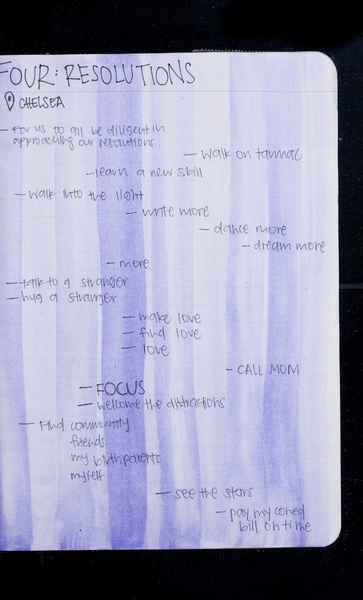 FOUR: RESOLUTIONS
CHELSEA
- For us to all be diligent in
approaching our resolutions.
- walk on tarmac
- learn a new skill
- walk into the light
- write more
- dance more
- dream more
- more
- talk to a stranger
- hug a stranger
- make love
- find love
- love
- CALL MOM
- FOCUS
- welcome the distractions
- Find community
friends
my birth parents
myself
- see the stars
- pay my coned
bill on time